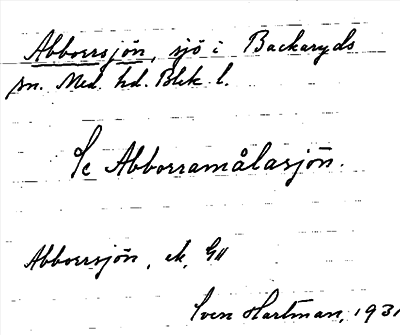 Abborrsjön, sjö i Backaryds
sn. Med. hd. Blek. l.
Se Abborramålasjön.
Abborrsjön, ek, G11
Sven Hartman, 1931